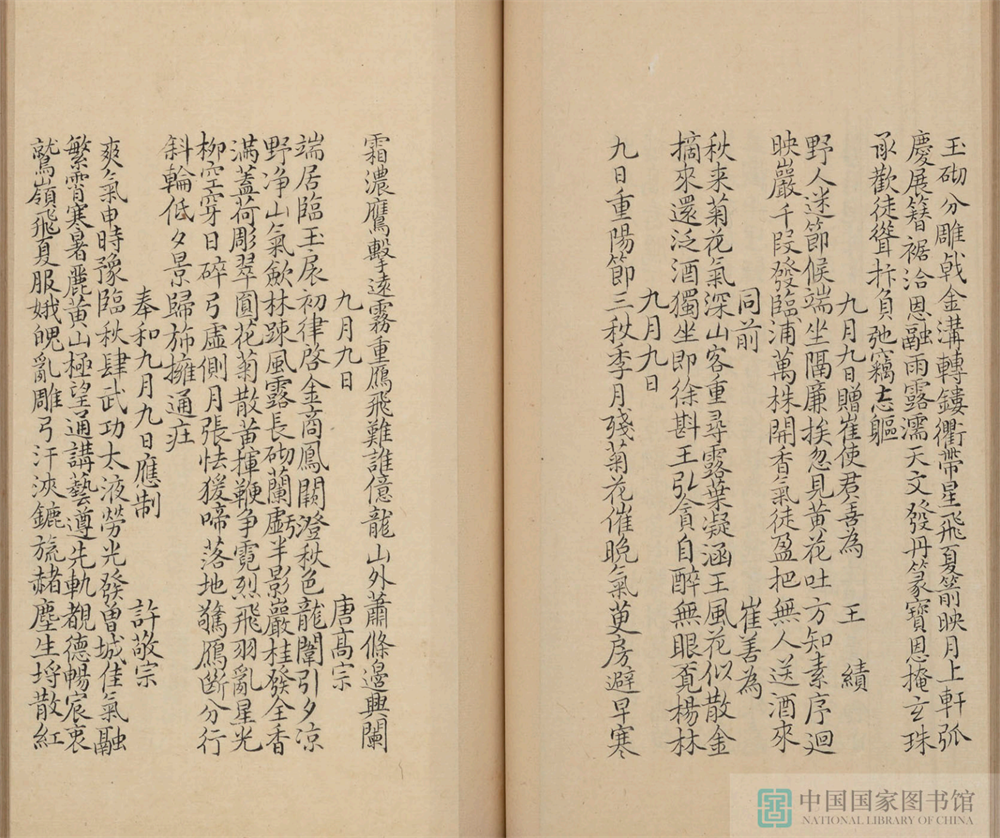 玉砌分雕戟金溝轉鏤衢帶星飛夏箭映月上軒弧
慶展簪裾洽恩融雨露濡天文發丹篆寶思掩玄珠
承歡徒聳抃負弛竊忘軀
九月九日贈崔使君善為　王　績
野人迷節候端坐隔塵埃忽見黃花吐方知素序迴
映巖千段發臨浦萬株開香氣徒盈把無人送酒來
同前　崔善為
秋来菊花氣深山客重尋露葉凝涵玉風花似散金
摘來還泛酒獨坐即徐斟王弘貪自醉無眼覓楊林
九月九日
九日重陽節三秋季月殘菊花催晚氣萸房避早寒
霜濃鷹擊遠霧重鴈飛難誰億龍山外蕭條邊興闌
九月九日　唐高宗
端居臨玉扆初律啓金商鳳闕澄秋色龍闈引夕凉
野净山氣歛林踈風露長砌蘭虧半影巖桂發全香
滿蓋荷彫翠圓花菊散黄揮鞭争電烈飛羽亂星光
柳空穿日碎弓虛側月張怯猨啼落地驚鴈断分行
斜輪低夕景歸斾擁通庄
奉和九月九日應制　許敬宗
爽氣申時豫臨秋肆武功太液勞光發曽城佳氣融
繁霄寒暑麗黄山極望通講藝遵先軌覩德暢宸衷
鷲嶺飛夏服娥魄亂雕弓汗浹鑣旒赭塵生埒散紅
中国国家图书馆
NATIONAL LIBRARY OF CHINA